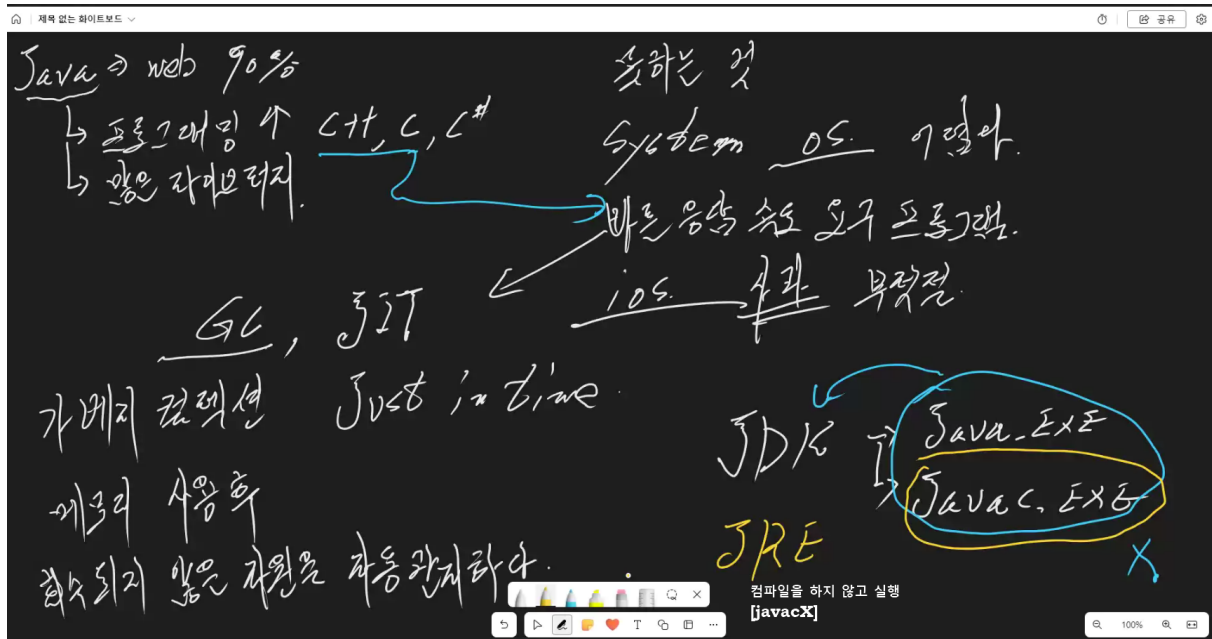 제목 없는 화이트보드
공유
Java ⇒ web 90%
↳ 프로그래밍 ↑ C++, C, C#
↳ 많은 라이브러리.
못하는 것
System OS. 어렵다.
빠른 응답 속도 요구 프로그램.
ios. 사과 부적절.
GC, JIT
가베지 컬렉션 Just in time.
메모리 사용후
회수되지 않은 자원을 자동관리하다.
JDK
Java.EXE
Javac.EXE
JRE
X
컴파일을 하지 않고 실행
[javacX]
100%